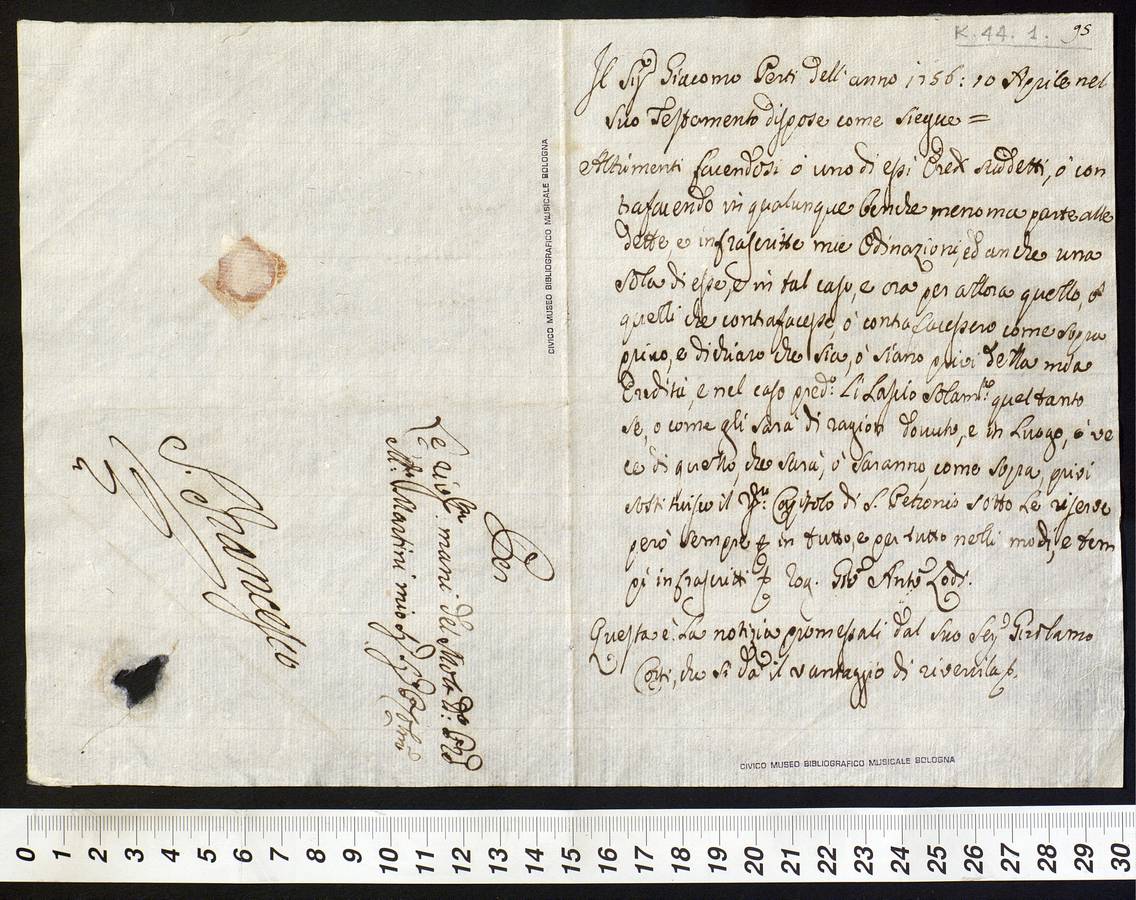 K. 44. 1. 95
Il Sig.r Giacomo Perti dell'anno 1756: 10 Aprile nel
suo Testamento dispose come siegue =
Altrimenti facendosi ò uno di essi Eredi suddetti, ò con
trafacendo in qualunque benche menoma parte alle
dette, e infrascritte mie Odinazioni, ed anche una
sola di esse, e in tal caso, e ora per allora quello, ò
quelli che contrafacesse, ò contrafacessero come sopra
privo, e dichiaro che sia, ò siano privi della mia
Eredità, e nel caso pred.o li lascio solam.te quel tanto
se, o come gli sarà di ragion dovuto, e in luogo, e ve
ce di quello, che sarà, ò saranno, come sopra, privi
sostituisco il Capitolo di S. Petronio sotto le riserve
però sempre in tutto, e per tutto nelli modi, e tem
pi infrascritti Rog. Gio. Ant.o Lodi.
Questa è la notizia promessali dal suo Ser.e Girolamo
Corti, che si dà il vantaggio di riverirla
CIVICO MUSEO BIBLIOGRAFICO MUSICALE BOLOGNA
CIVICO MUSEO BIBLIOGRAFICO MUSICALE BOLOGNA
Per
Le mani del Molto
Martini mio
S. Francesco
0 1 2 3 4 5 6 7 8 9 10 11 12 13 14 15 16 17 18 19 20 21 22 23 24 25 26 27 28 29 30